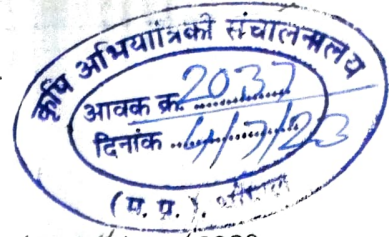 कृषि अभियांत्रिकी संचालनालय
आवक क्र. 2037
दिनांक 4/7/23
(म. प्र.) भोपाल